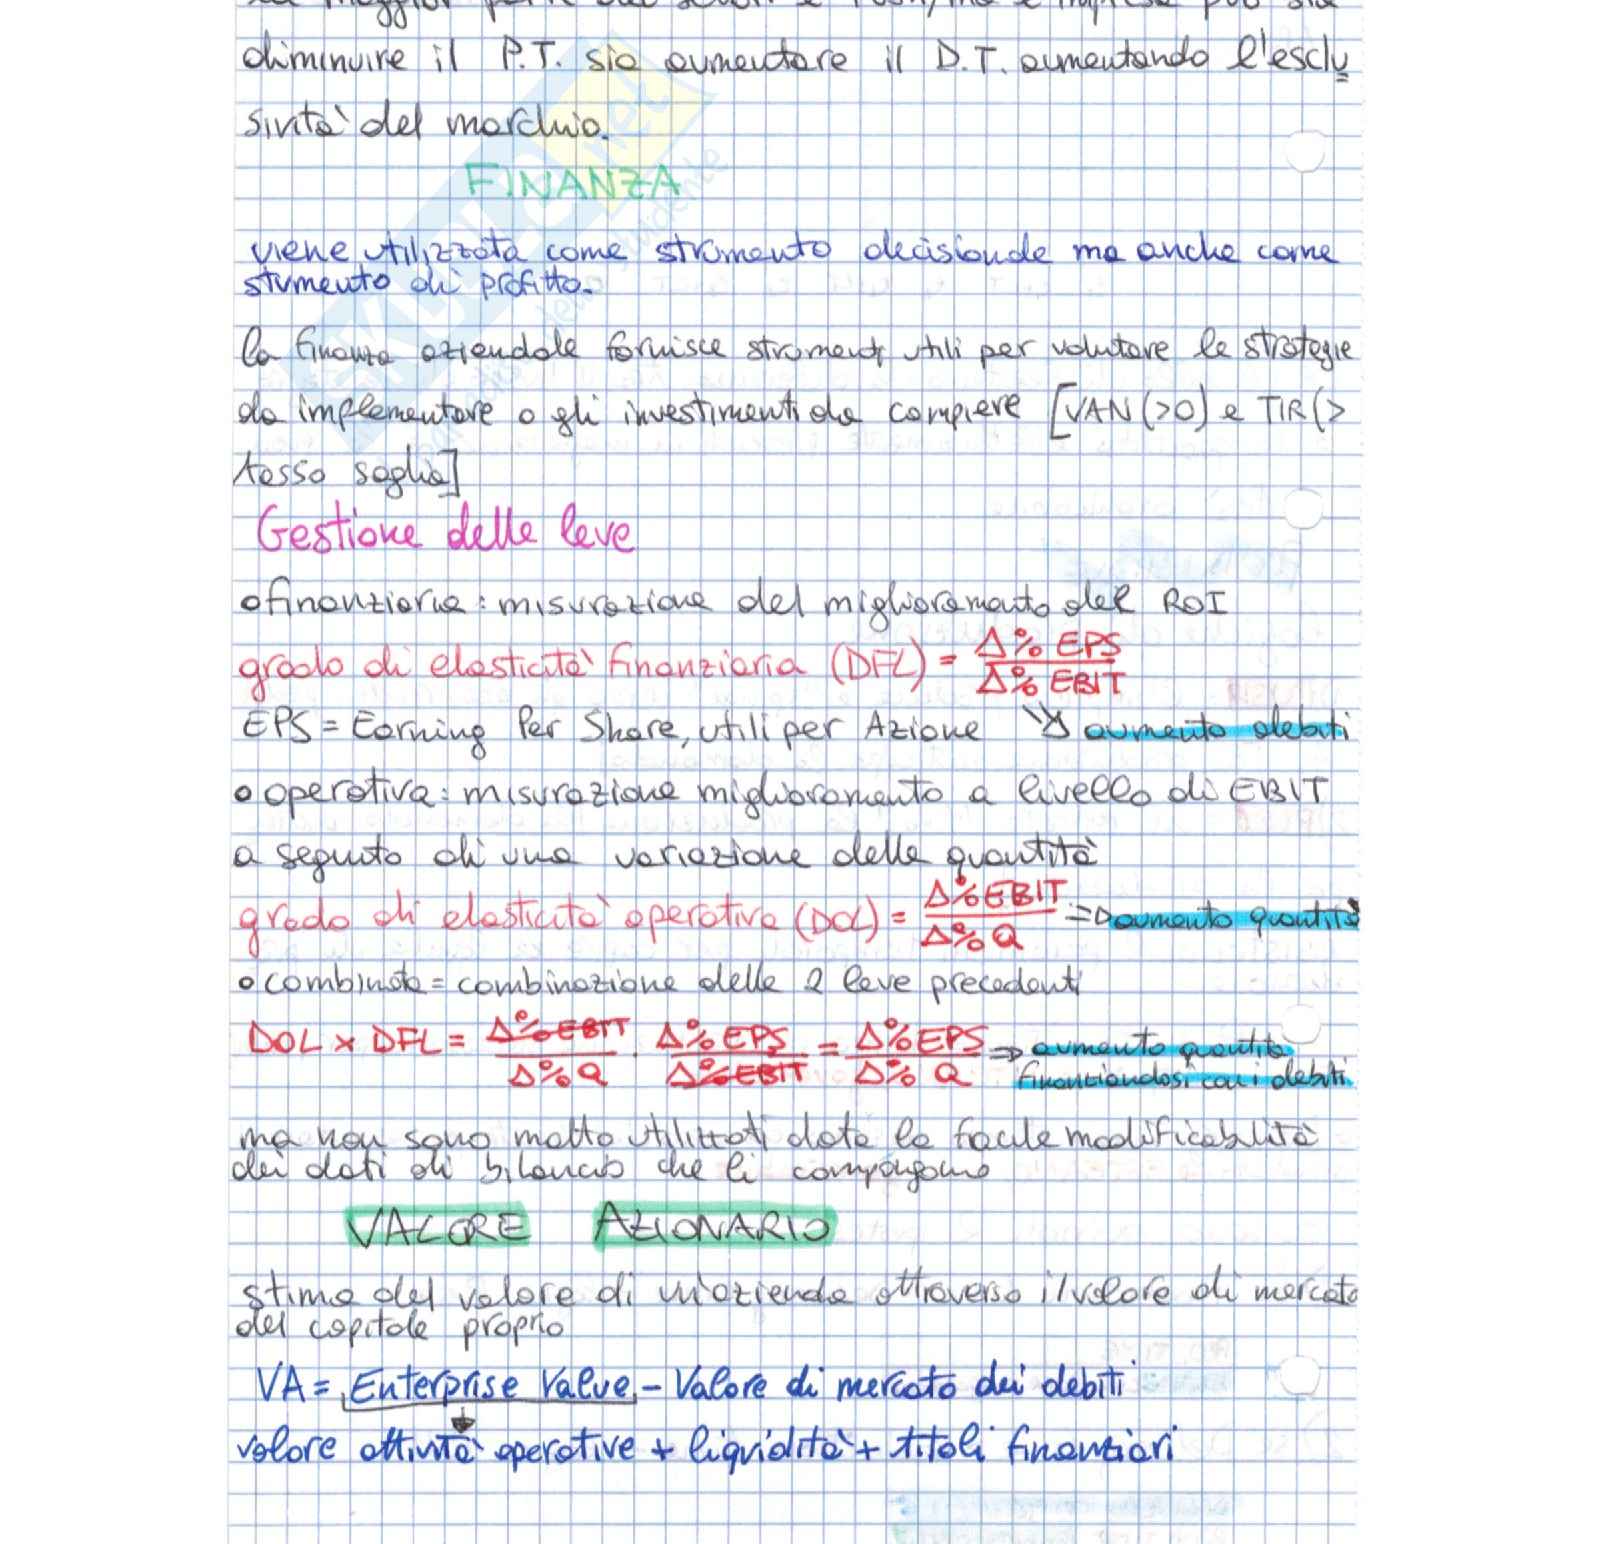 diminuire il P.T. sia aumentare il D.T. aumentando l'esclu
sività del marchio.
FINANZA
viene utilizzata come strumento decisionale ma anche come
stumento di profitto.
la finanza aziendale fornisce strumenti utili per valutare le strategie
da implementare o gli investimenti da compiere [VAN (>0) e TIR (>
tasso soglia]
Gestione delle leve
o finanziaria: misurazione del miglioramento del ROI
grado di elasticità finanziaria (DFL) = Δ% EPS / Δ% EBIT
EPS = Earning Per Share, utili per Azione ⇘ aumento debiti
o operativa: misurazione miglioramento a livello di EBIT
a seguito di una variazione delle quantità
grado di elasticità operativa (DOL) = Δ% EBIT / Δ% Q => aumento quantità
o combinata = combinazione delle 2 leve precedenti
DOL x DFL = Δ% EBIT / Δ% Q · Δ% EPS / Δ% EBIT = Δ% EPS / Δ% Q => aumento quantità
finanziandosi con i debiti
ma non sono molto utilizzati data la facile modificabilità
dei dati di bilancio che li compongono
VALORE AZIONARIO
stima del valore di un'azienda attraverso il valore di mercato
del capitale proprio
VA = Enterprise Value - Valore di mercato dei debiti
valore attività operative + liquidità + titoli finanziari